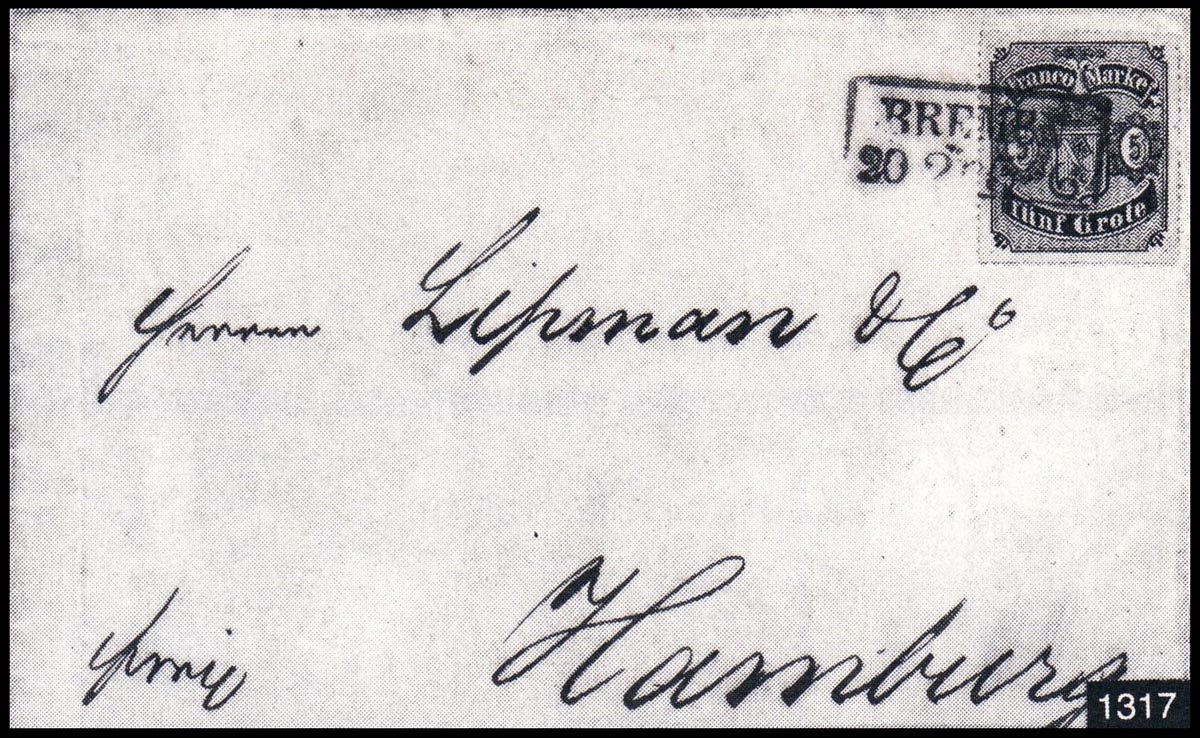 Franco Marke
BREM
5 5
20 2
fünf Grote
Herren Lipman & Co
Hamburg
1317